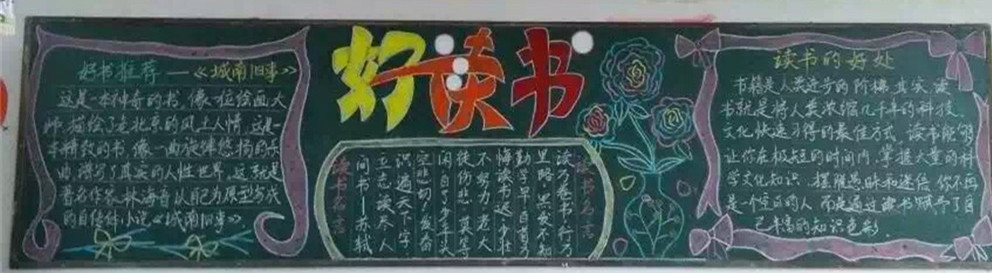 好书推荐——《城南旧事》
这是一本神奇的书,像一位绘画大
师,描绘了老北京的风土人情,这是一
本精致的书,像一曲旋律悠扬的乐
曲,谱写了真实的人性世界,这就是
著名作家林海音以自己为原型写成
的自传体小说《城南旧事》
好读书
读书名言
读万卷书,行万
里路。黑发不知
勤学早,白首方
悔读书迟。少壮
不努力,老大
徒伤悲。莫等
闲,白了少年头
空悲切。发奋
识遍天下字,
立志读尽人
间书——苏轼
读书名言
读书的好处
书籍是人类进步的阶梯,其实,读
书就是将人类浓缩几千年的科技、
文化快速习得的最佳方式,读书能够
让你在极短的时间内,掌握大量的科
学文化知识,摆脱愚昧和迷信,你不再
是一个空白的人,而是通过读书赋予了自
己丰富的知识色彩